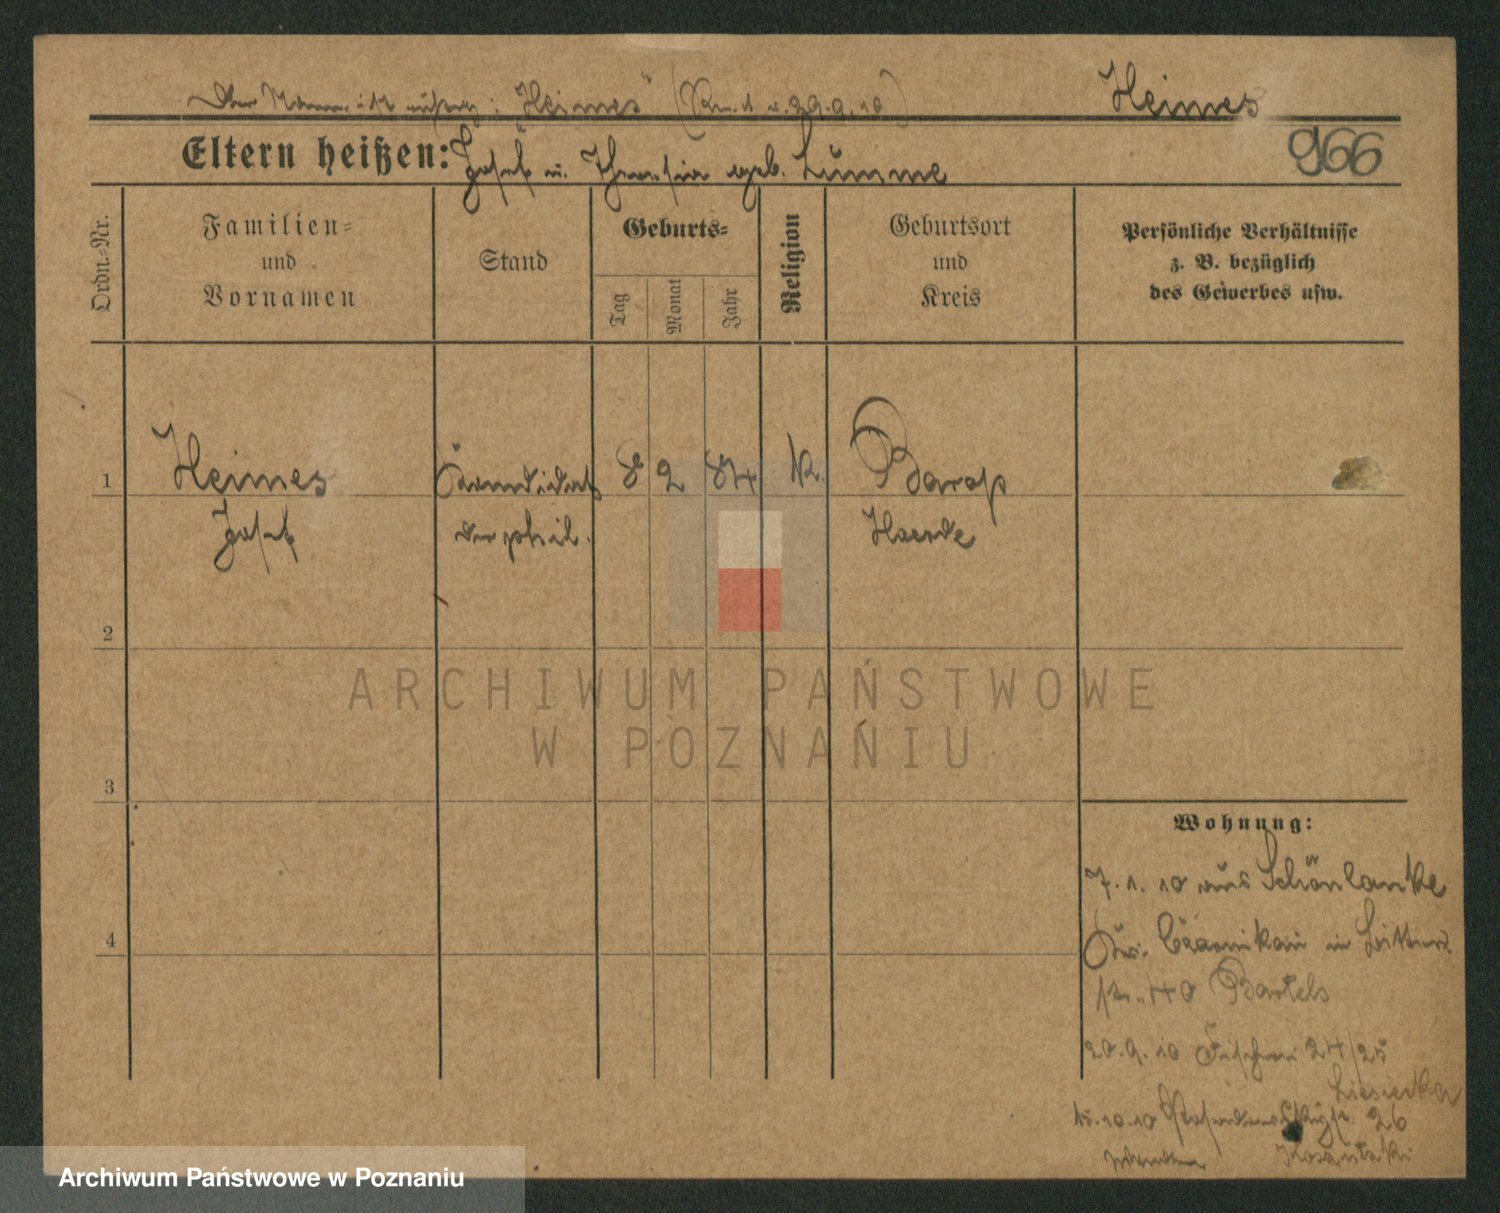 Der Name ist richtig: "Heimes" 29.9.10)
Heimes
966
Eltern heißen: Josef u. Theresia geb. Lümme
Ordn.=Nr.
Familien=
und
Vornamen
Stand
Geburts=
Tag
Monat
Jahr
Religion
Geburtsort
und
Kreis
Persönliche Verhältnisse
z. B. bezüglich
des Gewerbes usw.
1
Heimes
Kandidat
8 2 84
K.
Barop
Josef
der phil.
Hoerde
2
3
4
Wohnung:
7.1.10 aus Schönlanke
Kr. Czarnikau in
str. 40 Bartels
20.9.10 Fischerei 24/25
Liesiecka
15.10.10 26
ARCHIWUM PAŃSTWOWE
W POZNANIU
Archiwum Państwowe w Poznaniu